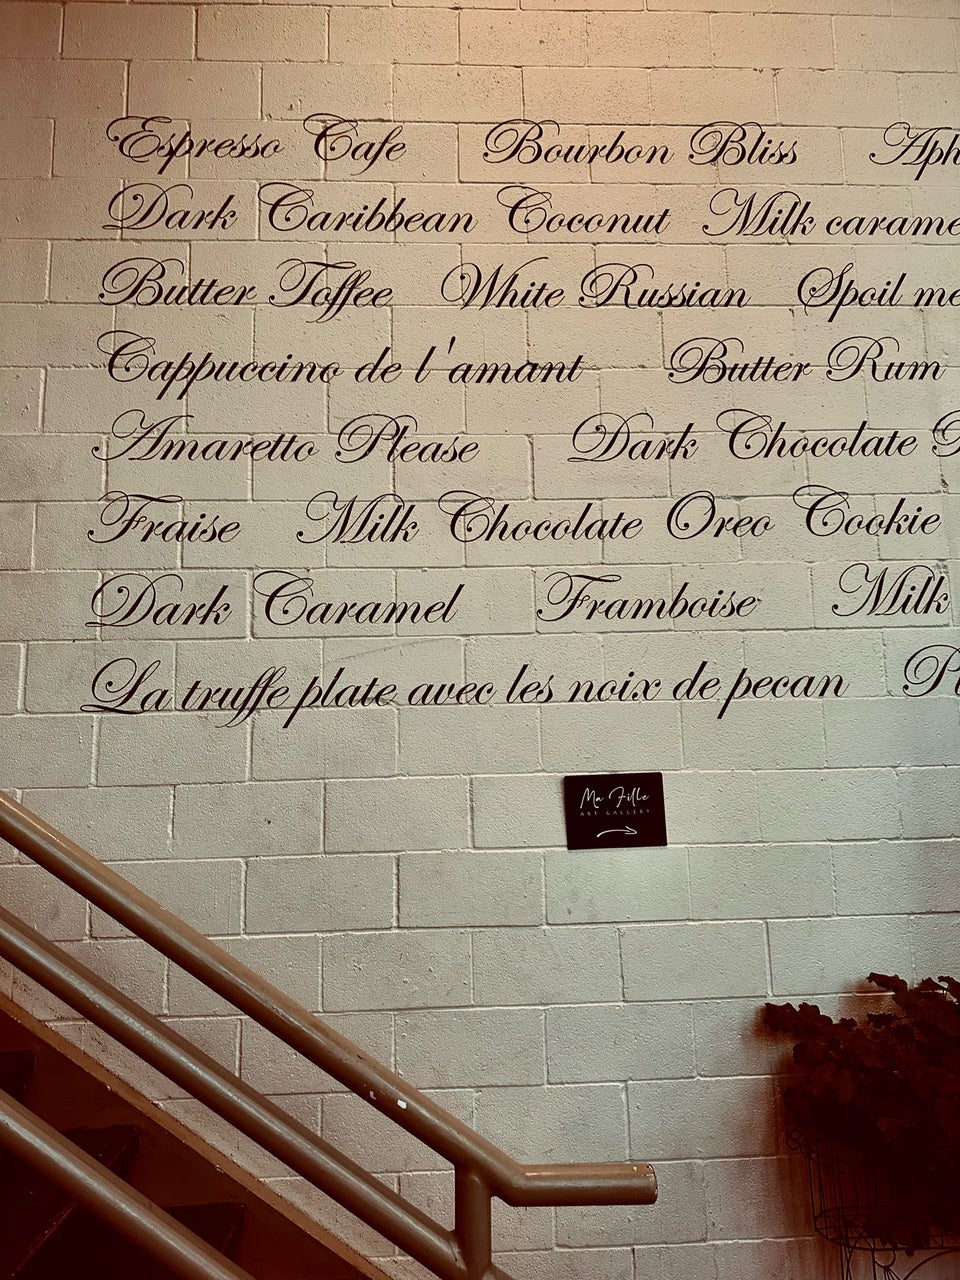 Espresso Cafe Bourbon Bliss
Dark Caribbean Coconut Milk
Butter Toffee White Russian Spoil me
Cappuccino de l'amant Butter Rum
Amaretto Please Dark Chocolate
Fraise Milk Chocolate Oreo Cookie
Dark Caramel Framboise Milk
La truffe plate avec les noix de pecan
Ma Fille
ART GALLERY